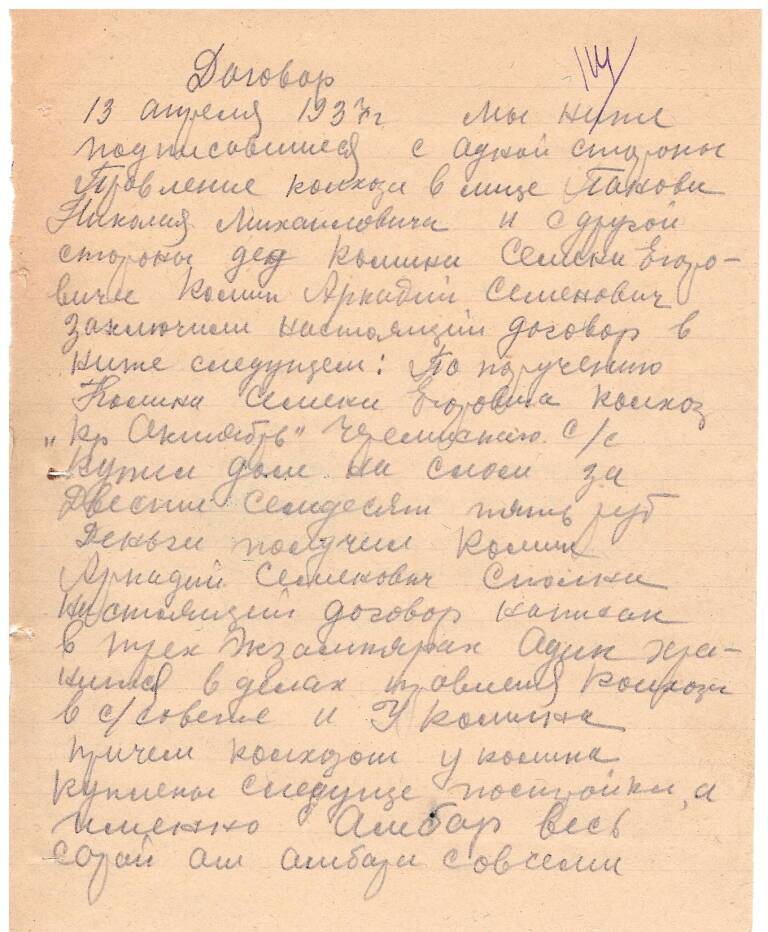 Договор
114
13 апреля 1937 г Мы ниже
подписавшиеся с адной стороны
Правление колхоза в лице Панова
Николая Михаиловича и с другой
стороны дед Колина Семена Егоро-
вича Колин Аркадий Семенович
заключили настоящий договор в
ниже следущем: По поручению
Колина Семена Егоровича колхоз
"Кр Октябрь" с/с
купил дом на слом за
Двести семдесят пять руб
Деньги получил Колин
Аркадий Семенович сполна
Настоящий договор написан
в трех экземпярах Адин хра-
нится в делах провления колхоза
в с/совете и У колина
причем колхозом у колина
куплены следуще постройки, а
именно Амбар весь
сарай от амбара совсеми